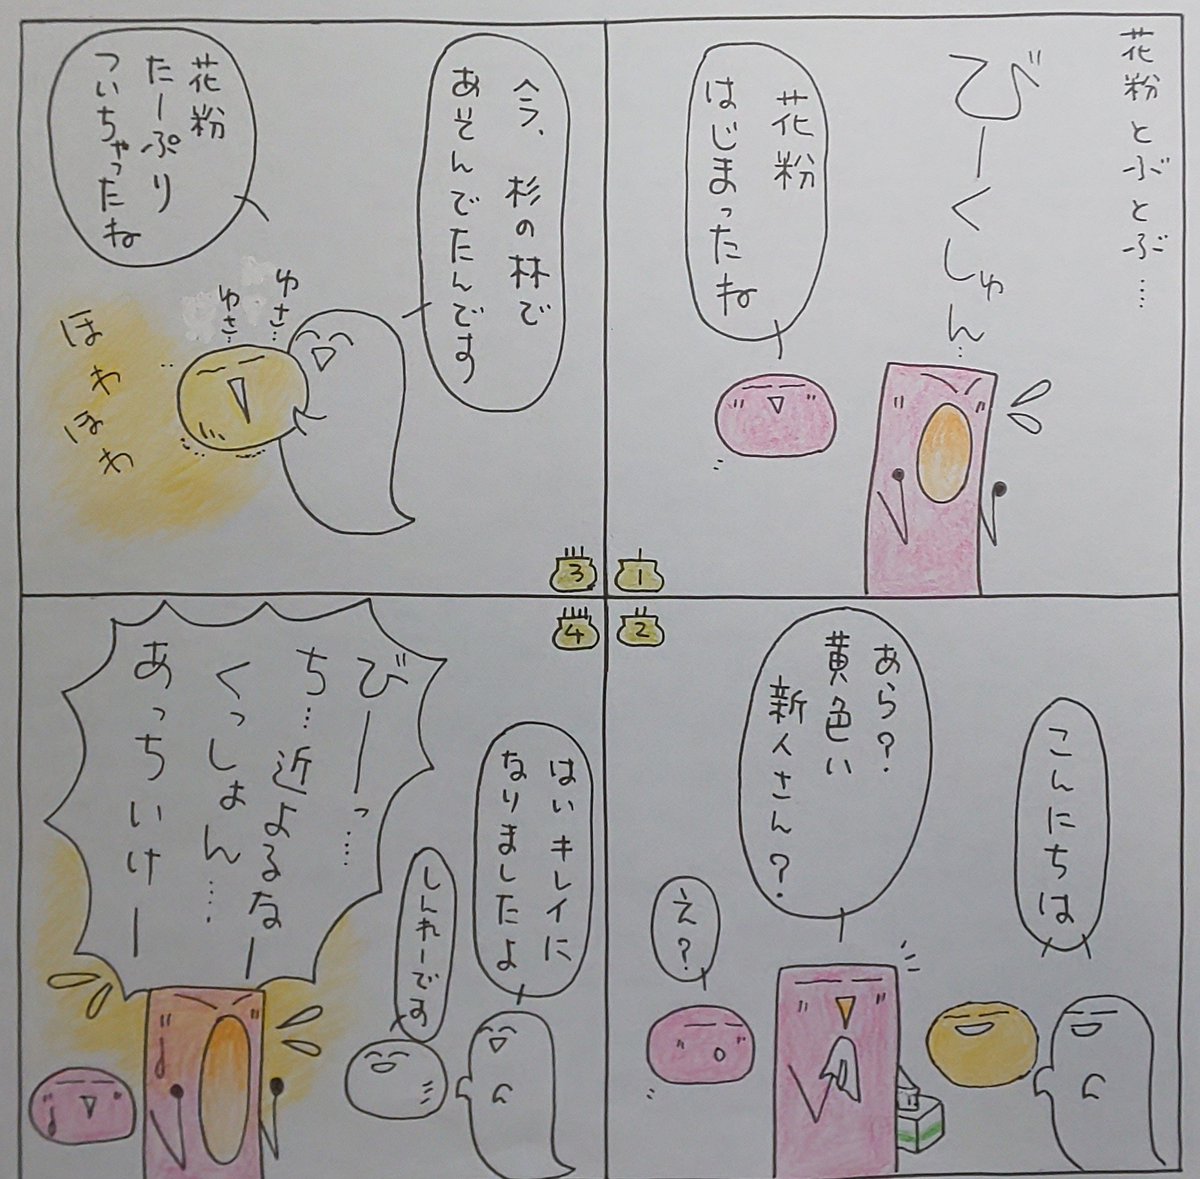 花粉とぶとぶ……
びーくしゅん…
花粉
はじまったね
1
2
こんにちは
あら?
黄色い
新人さん?
え?
3
今、杉の林で
あそんでたんです
花粉
たーぷり
ついちゃったね
ゆさ…
ゆさ…
ほわ
ほわ
4
はいキレイに
なりましたよ
しんれーです
びーっ……
ち…近よるなー
くっしょん……
あっちいけー